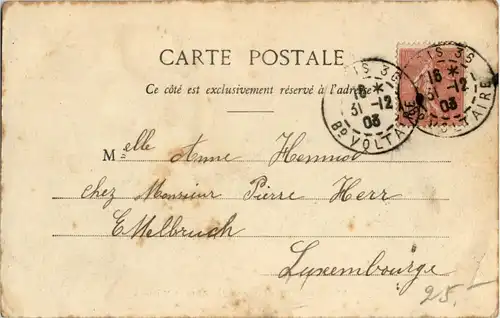 CARTE POSTALE
Ce côté est exclusivement réservé à l'adresse
IS 36
18 *
31 -12
03
Bd VOLTAIRE
IS 36
18 *
31 -12
03
VOLTAIRE
Melle Anne
chez Monsieur Pierre Herr
Ettelbruch
Luxembourge
25.-